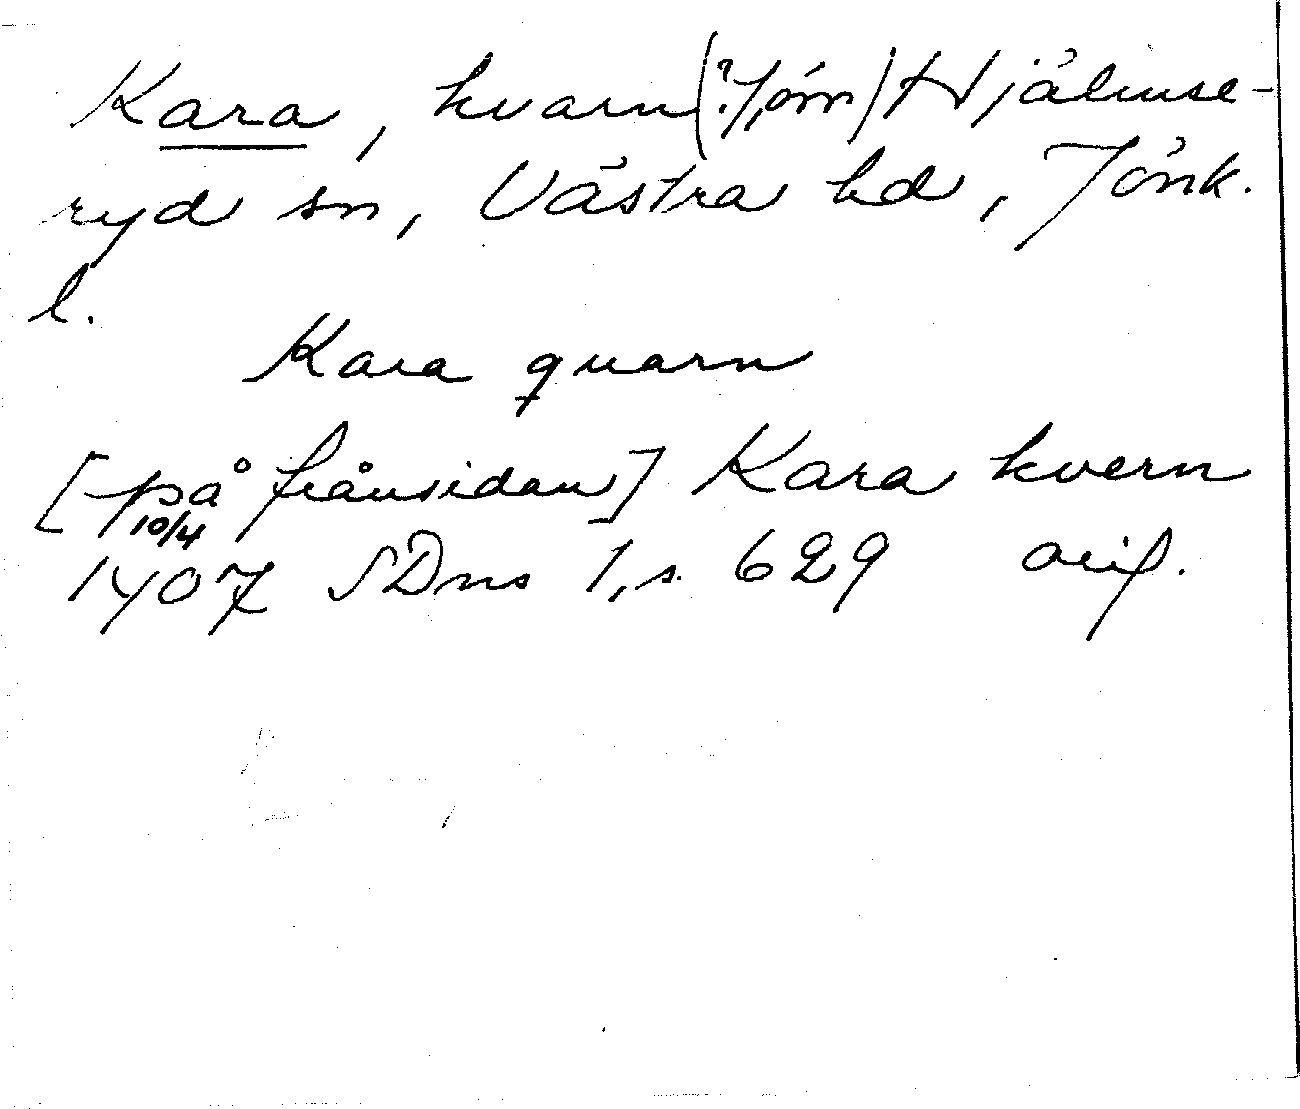 Kara, kvarn (? Jörn) Hjälmse-
ryd sn, Västra hd, Jönk.
l.
Kara quarn
[på frånsidan] Kara kvern
10/4
1407 SDns 1, s. 629 orig.